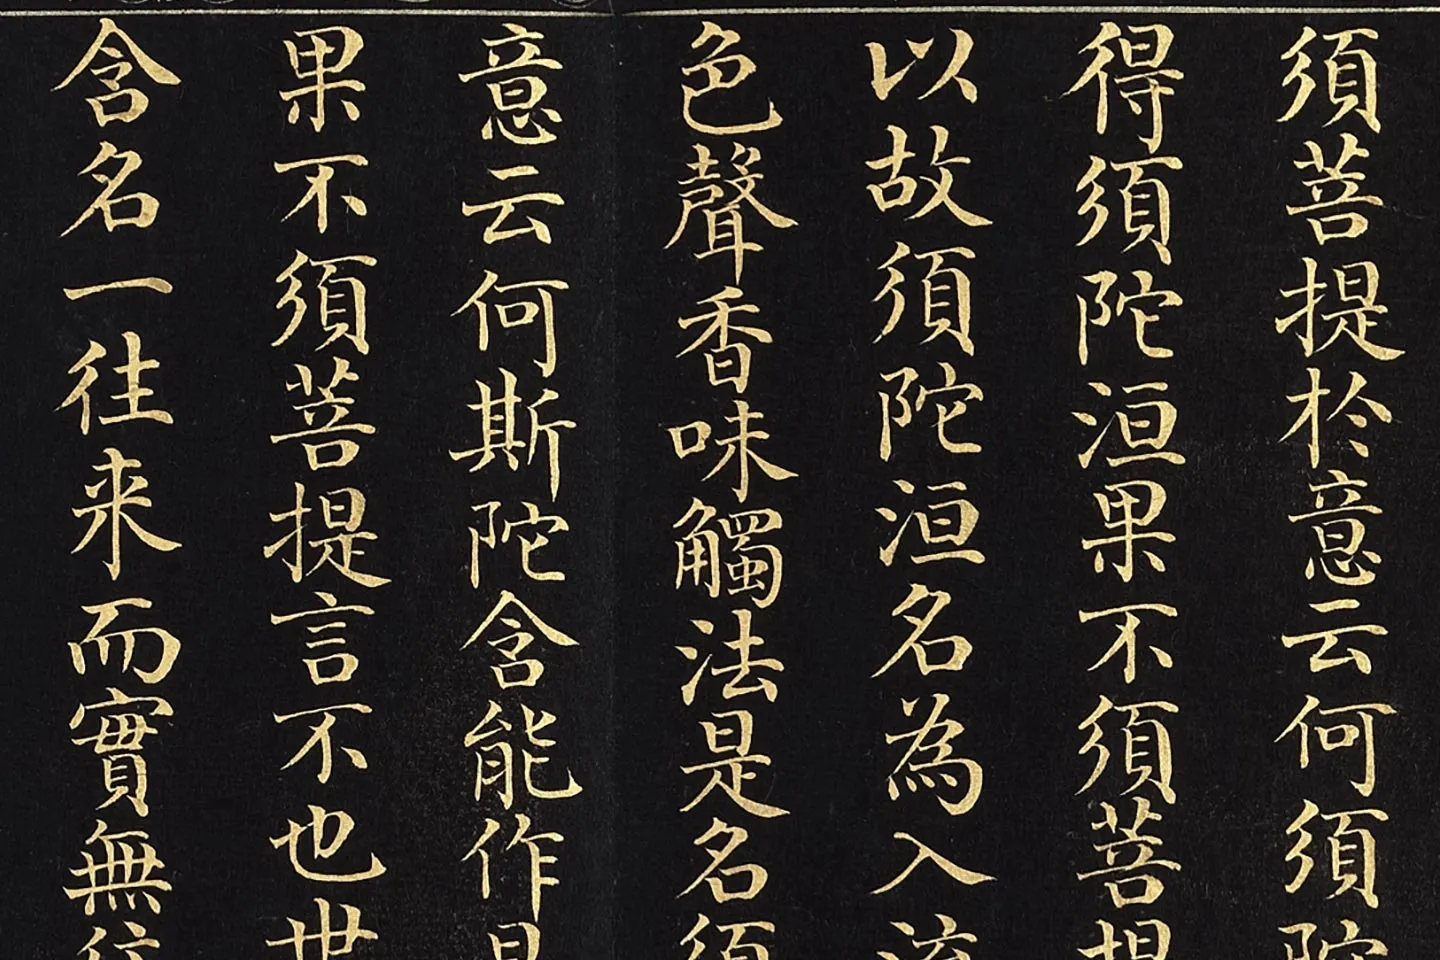 須菩提於意云何須陀
得須陀洹果不須菩提
以故須陀洹名為入流
色聲香味觸法是名須
意云何斯陀含能作是
果不須菩提言不也世
含名一往来而實無往